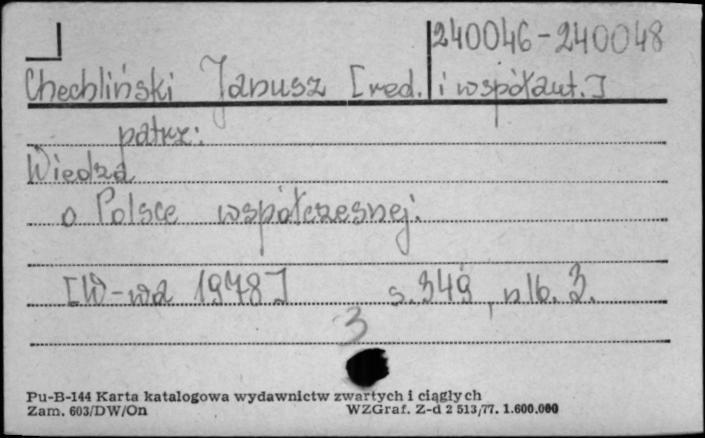 240046-240048
Chechliński Janusz [red. i współaut.]
patrz:
Wiedza
o Polsce współczesnej.
[W-wa 1978] s. 349, nlb. 3.
3
Pu-B-144 Karta katalogowa wydawnictw zwartych i ciągłych
Zam. 603/DW/On WZGraf. Z-d 2 513/77. 1.600.000